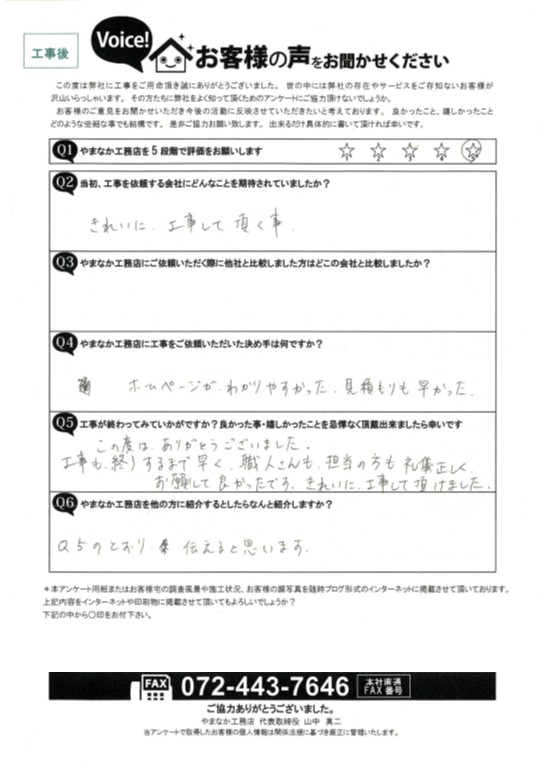 工事後
Voice!
お客様の声をお聞かせください
この度は弊社に工事をご用命頂き誠にありがとうございました。 世の中には弊社の存在やサービスをご存知ないお客様が
沢山いらっしゃいます。 その方たちに弊社をよく知って頂くためのアンケートにご協力頂けないでしょうか。
お客様のご意見をお聞かせいただき今後の活動に反映させていただきたいと考えております。 良かったこと、嬉しかったこと
どのような些細な事でも結構です。 是非ご協力お願い致します。 出来るだけ具体的に書いて頂ければ幸いです。
Q1 やまなか工務店を5段階で評価をお願いします
1 2 3 4 5
Q2 当初、工事を依頼する会社にどんなことを期待されていましたか?
きれいに、工事して頂く事。
Q3 やまなか工務店にご依頼いただく際に他社と比較しました方はどこの会社と比較しましたか?
Q4 やまなか工務店に工事をご依頼いただいた決め手は何ですか?
ホームページが、わかりやすかった、見積もりも早かった。
Q5 工事が終わってみていかがですか?良かった事・嬉しかったことを忌憚なく頂戴出来ましたら幸いです
この度は、ありがとうございました。
工事も、終りするまで早く、職人さんも、担当の方も礼儀正しく、
お願して良かったです、きれいに、工事して頂けました。
Q6 やまなか工務店を他の方に紹介するとしたらなんと紹介しますか?
Q5のとおり、伝えると思います。
*本アンケート用紙またはお客様宅の調査風景や施工状況、お客様の顔写真を随時ブログ形式のインターネットに掲載させて頂いております。
上記内容をインターネットや印刷物に掲載させて頂いてもよろしいでしょうか?
下記の中から〇印をお付下さい。
FAX 072-443-7646 本社直通 FAX番号
ご協力ありがとうございました。
やまなか工務店 代表取締役 山中 真二
当アンケートで取得したお客様の個人情報は関係法規に基づき厳正に管理いたします。